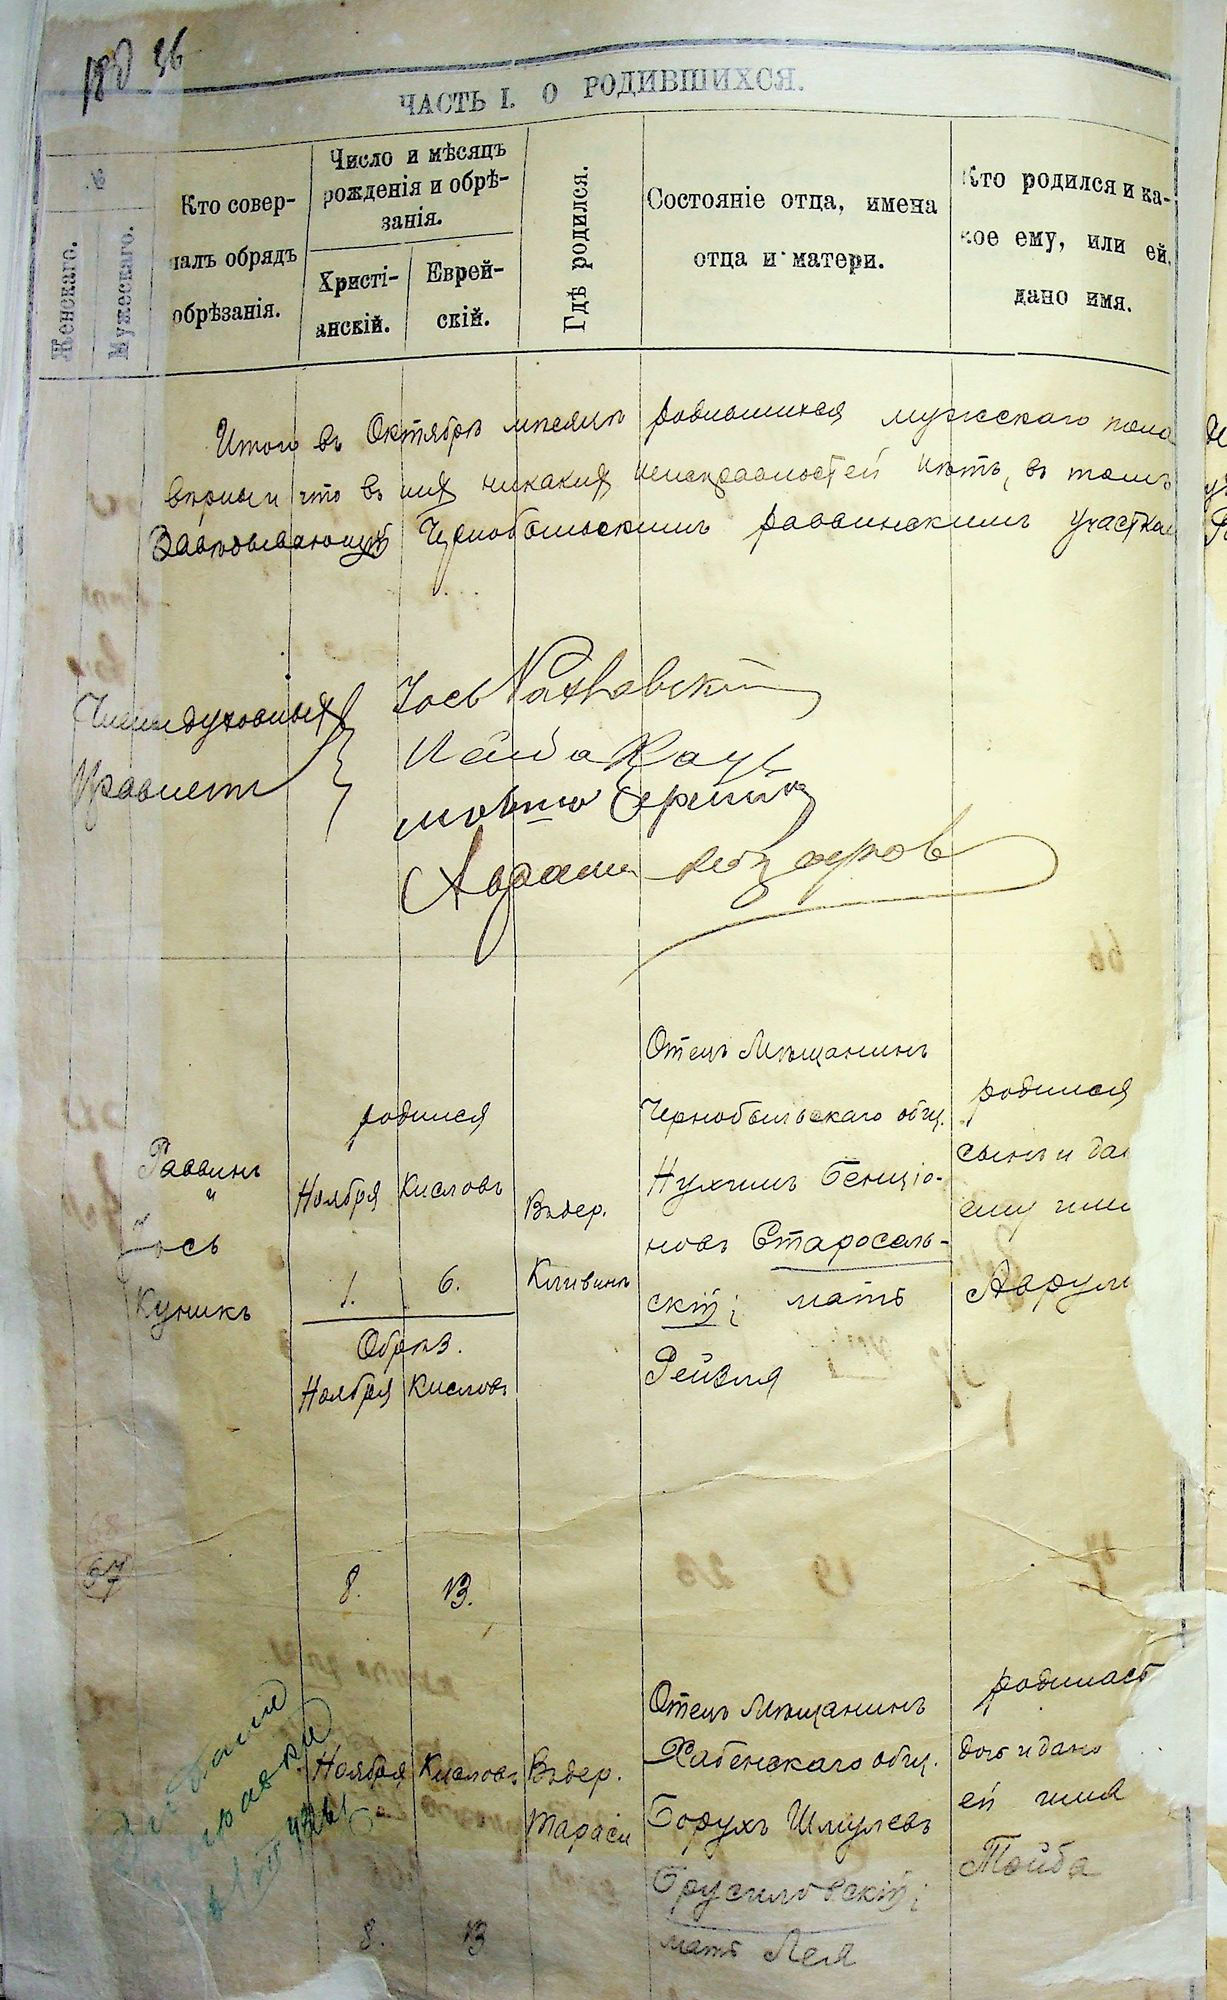 36
ЧАСТЬ I. О РОДИВШИХСЯ.
№
Женскаго.
Мужескаго.
Кто совер-
шалъ обрядъ
обрѣзанія.
Число и мѣсяцъ
рожденія и обрѣ-
занія.
Христі-
анскій.
Еврей-
скій.
Гдѣ родился.
Состояніе отца, имена
отца и матери.
Кто родился и ка-
кое ему, или ей,
дано имя.
Итого въ Октябрѣ мѣсяцѣ родившихся мужскаго пола
вѣрны и что въ них никаких неисправностей нѣтъ, въ томъ
Завѣдывающій Чернобыльскимъ раввинскимъ участкомъ
Члены духовных
Правленія
Іось
Мовшо
Аврам
Раввинъ
"
Іось
Куникъ
родился
Ноября Кисловъ
1. 6.
Обрѣз.
Ноября Кисловъ
8. 13.
Въ дер.
Отецъ Мѣщанинъ
Чернобыльскаго общ.
Нухимъ Бенціо-
новъ Старосель-
скій; мать
Рейзля
родился
сынъ и да
ему имя
Аврум
57
Ноября Кисловъ
8. 13
Въ дер.
Тараси
Отецъ Мѣщанинъ
Хабенскаго общ.
Борухъ Шмулевъ
Брусиловскій;
мать Лея
родилась
дочь и дано
ей имя
Тойба